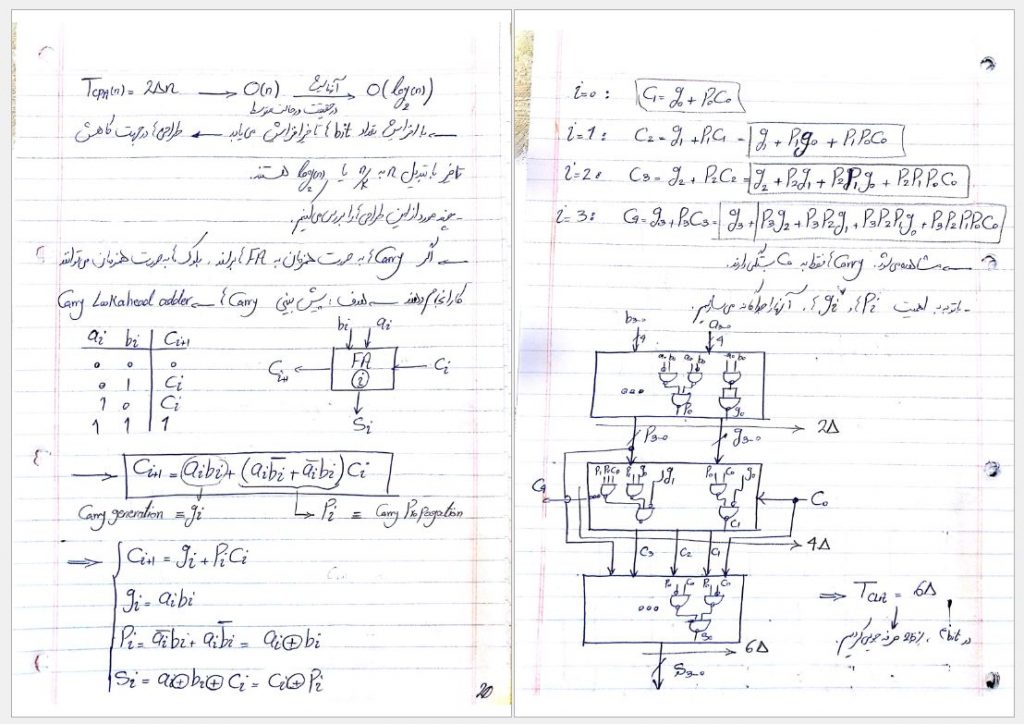 T_CPA(n) = 2Δn → O(n) → O(log₂(n))
با افزایش تعداد bit ها تاخیر افزایش می‌یابد ← طراحی‌ها در جهت کاهش
تاخیر با تبدیل n به n/k یا log₂(n) هستند.
- چند مورد از این طراحی‌ها را بررسی می‌کنیم.
اگر Carry ها به صورت همزمان به FA ها برسند، بلوک‌ها به صورت همزمان می‌توانند
کار انجام دهند ← هدف: پیش بینی Carry ها ← Carry Lookahead adder
ai bi Ci+1
0 0 0
0 1 Ci
1 0 Ci
1 1 1
bi ai
Ci+1 FA i Ci
Si
Ci+1 = aibi + (aib̄i + āibi)Ci
Carry generation ≡ gi → Pi ≡ Carry Propagation
⇒ Ci+1 = gi + PiCi
gi = aibi
Pi = āibi + aib̄i = ai⊕bi
Si = ai⊕bi⊕Ci = Ci⊕Pi
20
i=0: C1 = g0 + P0C0
i=1: C2 = g1 + P1C1 = g1 + P1g0 + P1P0C0
i=2: C3 = g2 + P2C2 = g2 + P2g1 + P2P1g0 + P2P1P0C0
i=3: C4 = g3 + P3C3 = g3 + P3g2 + P3P2g1 + P3P2P1g0 + P3P2P1P0C0
مشاهده می‌شود Carry ها فقط به C0 بستگی دارند.
- با توجه به اهمیت Pi ها و gi ها، آنها را جداگانه می‌سازیم.
b3-0 a3-0
4 4
a0 b0 a0 b0 a0 b0
...
P0 g0
P3-0 g3-0 2Δ
P1P0C0 P1 g0 g1 P0 C0 g0
C4 C1 C0
C3 C2 C1 4Δ
P0 C0 P0 C0
... S0
⇒ T_CLA = 6Δ
6Δ
S3-0